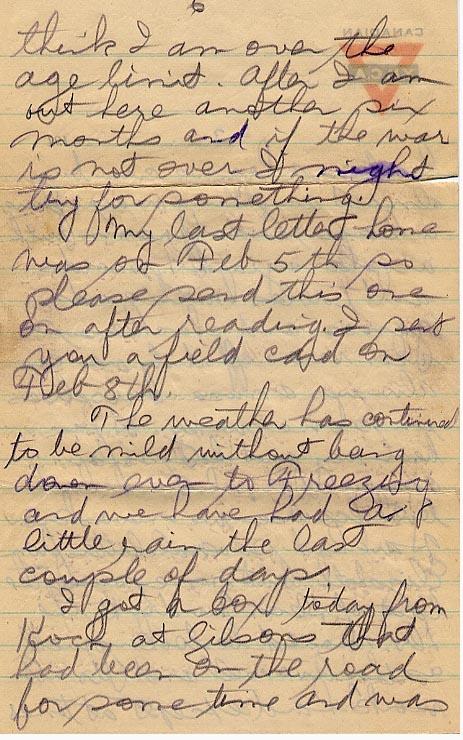 6
think I am over the
age limit. After I am
out here another six
months and if the war
is not over I might
try for something.
My last letter home
was on Feb 5th so
please send this one
on after reading. I sent
you a field card on
Feb 8th.
The weather has continued
to be mild without being
down even to Freezing
and we have had a
little rain the last
couple of days.
I got a box today from
at Gibsons that
had been on the road
for some time and was
CANADIAN